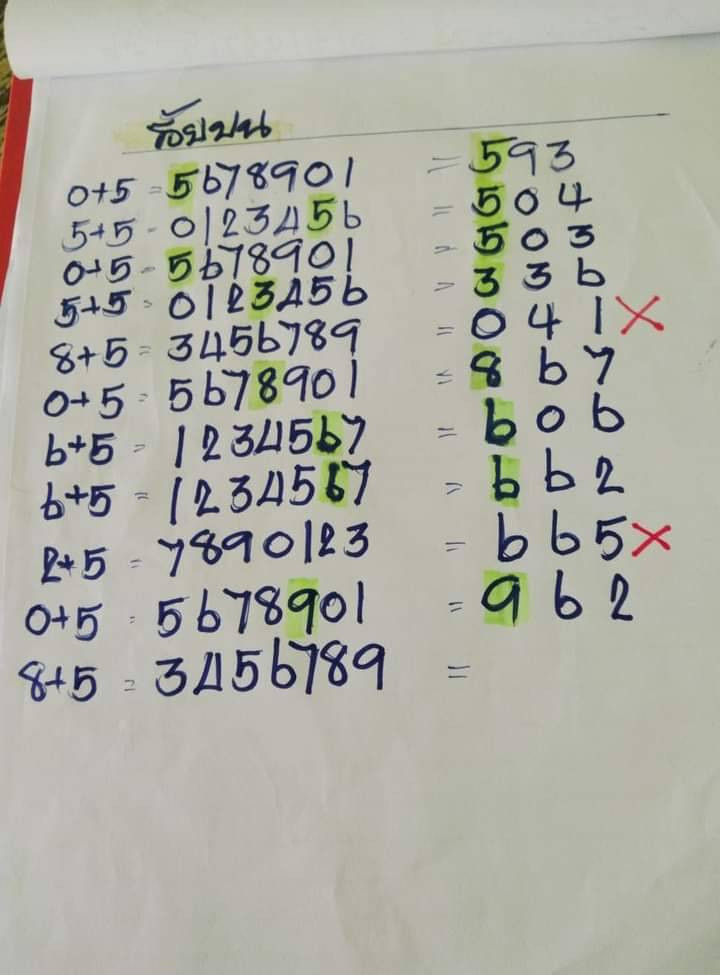 ร้อยบน
0+5 = 5678901 = 593
5+5 = 0123456 = 504
0+5 = 5678901 = 503
5+5 = 0123456 = 336
8+5 = 3456789 = 041 X
0+5 = 5678901 = 867
6+5 = 1234567 = 606
6+5 = 1234567 = 662
2+5 = 7890123 = 665 X
0+5 = 5678901 = 962
8+5 = 3456789 =